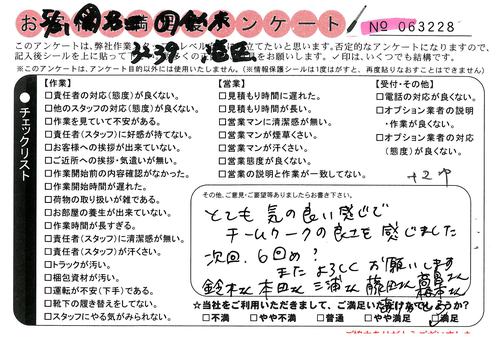 お客様満足度アンケート
№ 063228
このアンケートは、弊社作業
記入後シールを上に貼って
お願いします。✓印は、いくつでも結構です。
※このアンケートは、アンケート目的以外には使用いたしません。(※情報保護シールは1度はがすと、再度貼りなおすことはできません)
チェックリスト
【作業】
□責任者の対応(態度)が良くない。
□他のスタッフの対応(態度)が良くない。
□作業を見ていて不安がある。
□責任者(スタッフ)に好感が持てない。
□お客様への挨拶が出来ていない。
□ご近所への挨拶・気遣いが無い。
□作業開始前の内容確認がなかった。
□作業開始時間が遅れた。
□荷物の取り扱いが雑である。
□お部屋の養生が出来ていない。
□作業時間が長すぎる。
□責任者(スタッフ)に清潔感が無い。
□責任者(スタッフ)が汗くさい。
□トラックが汚い。
□梱包資材が汚い。
□運転が不安(下手)である。
□靴下の履き替えをしてない。
□スタッフにやる気がみられない。
【営業】
□見積もり時間に遅れた。
□見積もり時間が長い。
□営業マンに清潔感が無い。
□営業マンが煙草くさい。
□営業マンが汗くさい。
□営業態度が良くない。
□営業の説明と作業が一致してない。
【受付・その他】
□電話の対応が良くない。
□オプション業者の説明
・作業が良くない。
□オプション業者の対応
(態度)が良くない。
その他、ご意見・ご要望等ありましたらお書き下さい。
とても気の良い感じで
チームワークの良さを感じました
次回、6回め?
またよろしくお願いします
鈴木さん 本田さん 三浦さん 藤田さん
☆当社をご利用いただきまして、ご満足いただけたでしょうか?
□不満 □やや不満 □普通 □やや満足 □満足